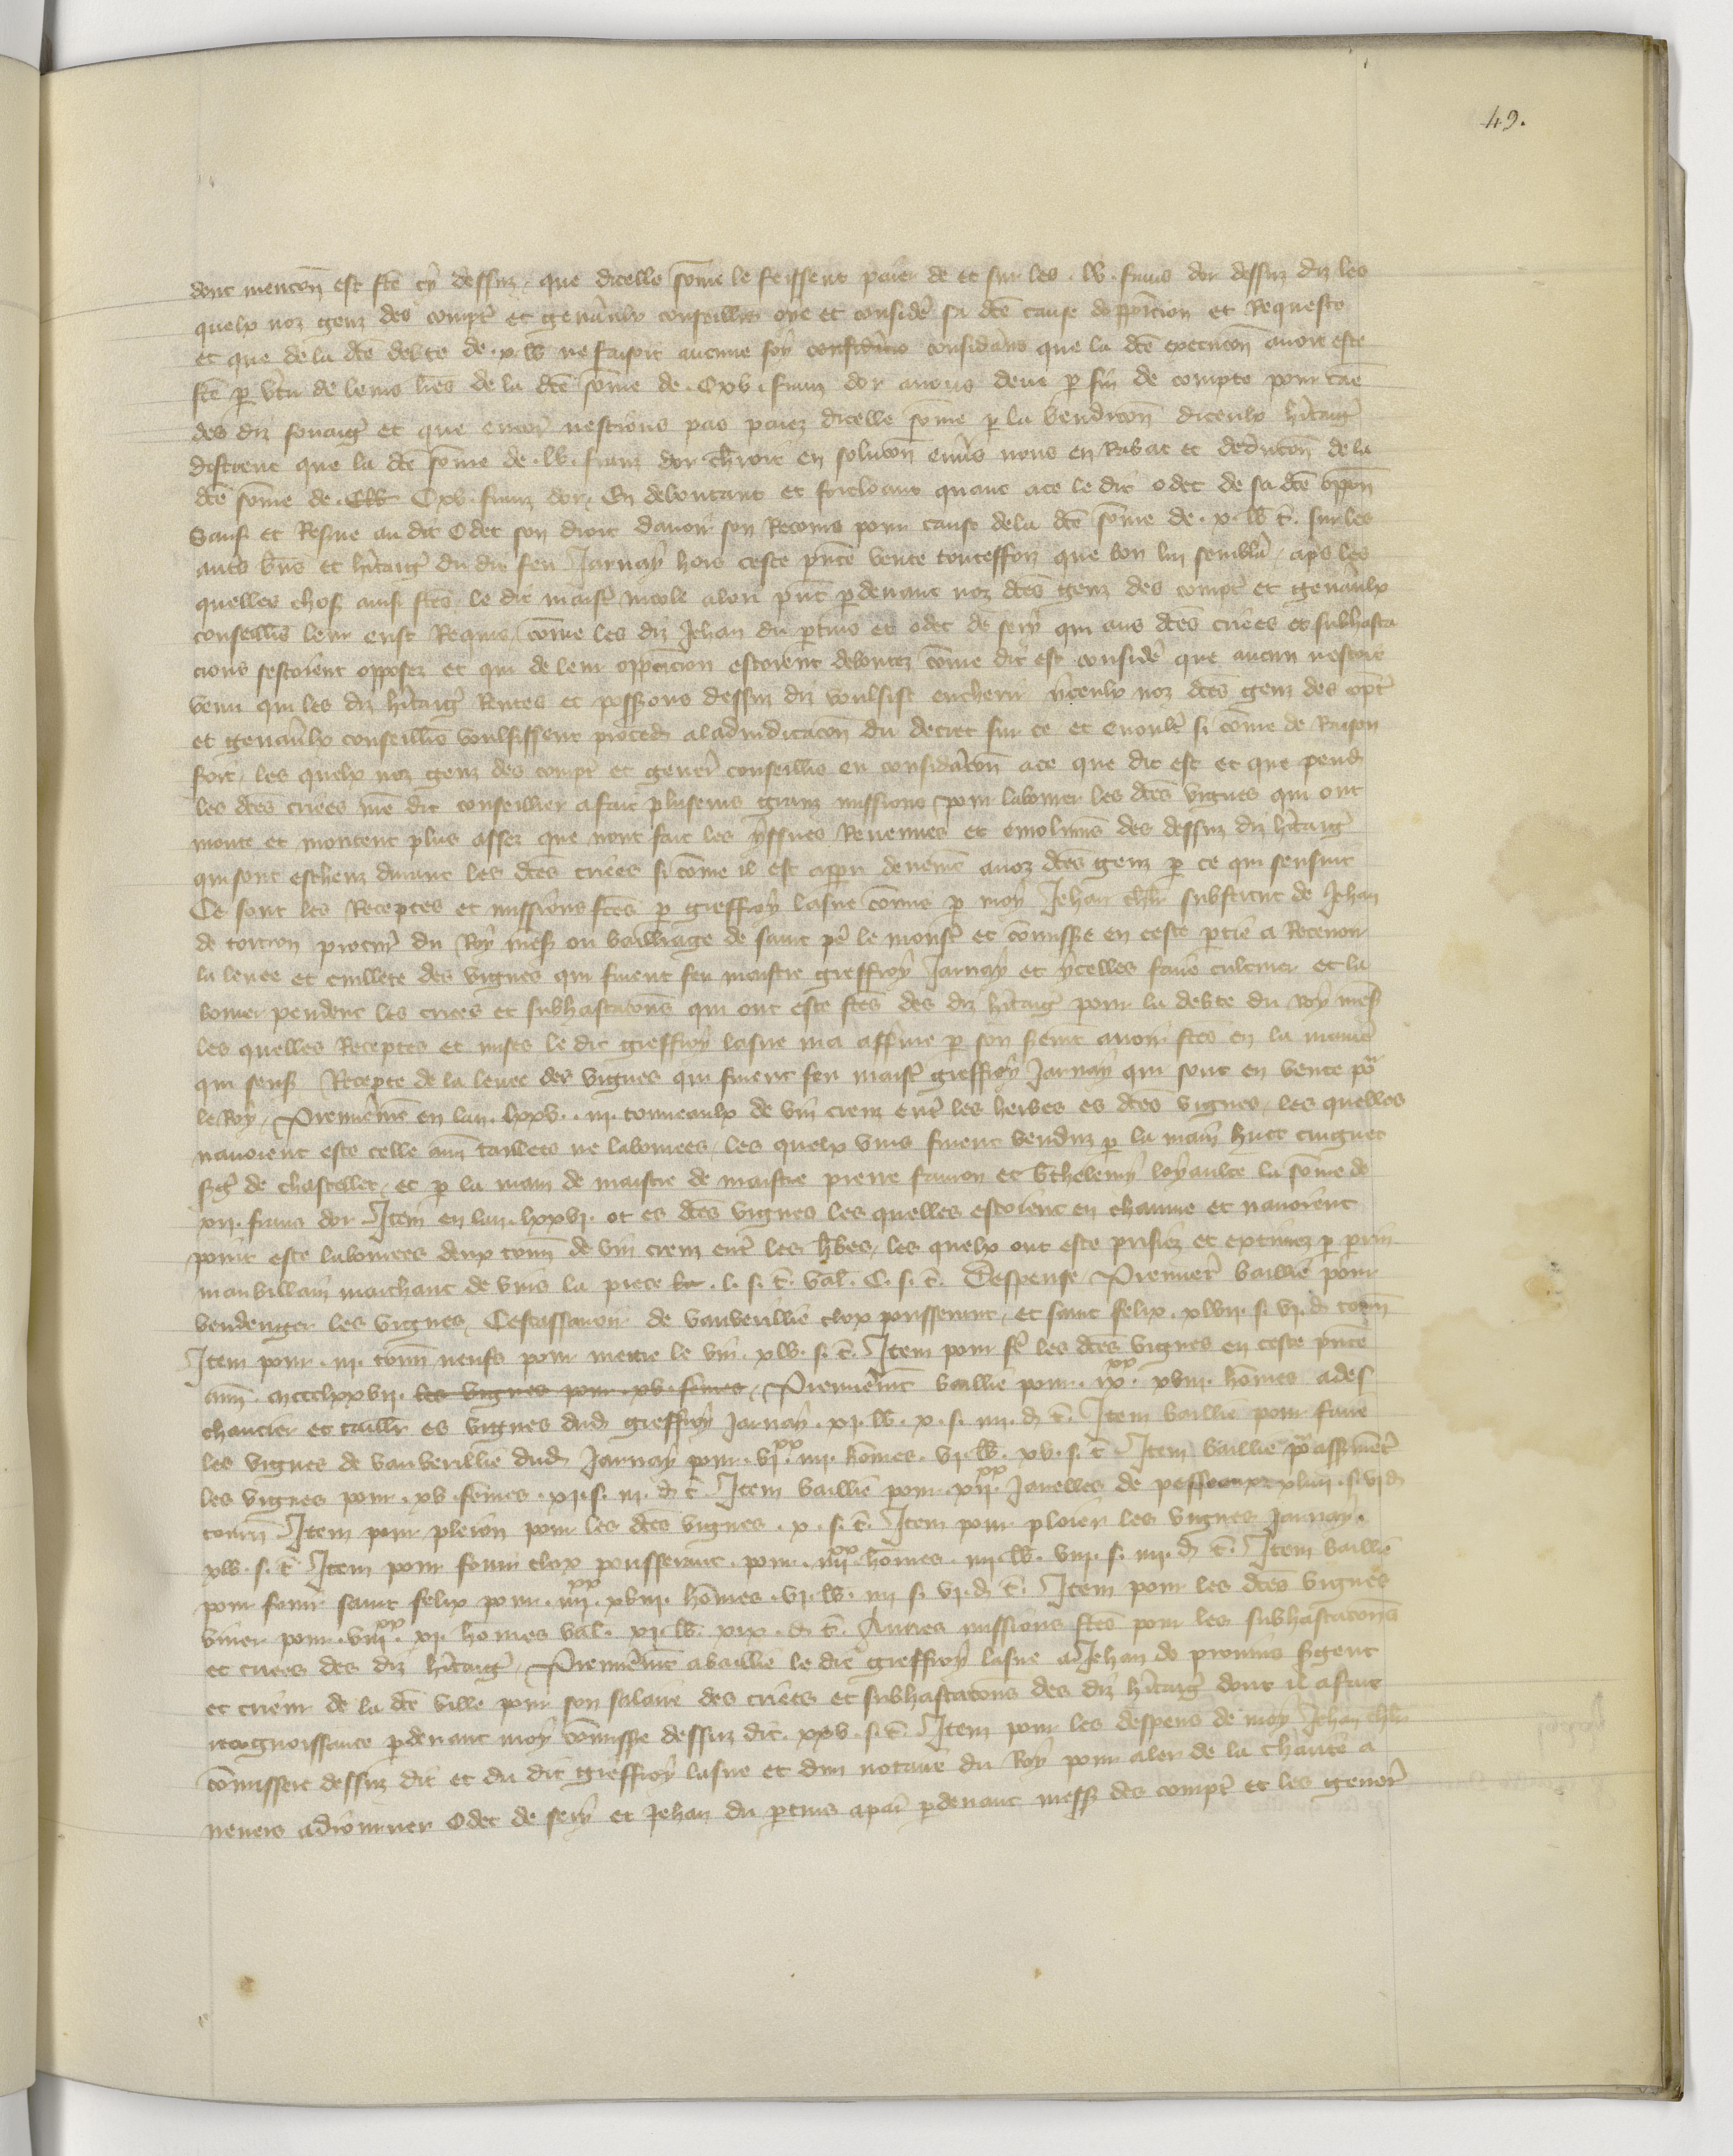 49.
dont mencon est fcē cy dessuz, que dicelle sōme le feissent paier de et sur les . lv . frans dor dessuz diz les
quelx noz genz des compt et genaulx conseilliers oye et considere sa dcē cause dopposicion et Requeste
et que de la dcē debte de . x. lb ne faisoit aucune foy considans considans que la dcē execucon avoit este
fcē p vtu de leurs lres de la dcē sōme de . Cxv . franz dor a nous deue p fin de compte pour cause
des diz fouaig et que encor nestions pas paiez dicelle sōme p la vendicon diceulx hitaig
distrent que la dcē sōme de . lv . franz dor cherroit en solucon envers nous en Rabat et deducon de la
dcē sōme de . Cxv . franz dor, En deboutant et forcloant quant a ce le dit odet de sa dcē oppon
Sauf et Reserve au dit Odet son droit davoir son Recours pour cause de la dcē sōme de . x. lb t. sur les
autres biens et hitaig du dit feu Jarnay hors ceste pnte vente touteffoiz que bon lui semblera, apres les
quelles choses ainsi fcēs, le dit maistre nicole alon pnt p devant noz dcēs genz des compt et genaulx
conseillers leur eust Requis, cōme les diz Jehan du ptuis et odet de sery qui aus dcēs criees et subhasta
cions sestoient opposez et qui de leur opposicion estoient deboutez cōme dit est considere que aucun nestoit
venu qui les diz hitaig Rentes et possessions dessuz diz voulsist encherir yceulx noz dcēs genz des compt
et genaulx conseillers voulsissent proceder a ladiudicacon du decret sur ce et enoultre si cōme de Raison
soit, les quelx noz genz des compt et gener conseillers en consideracon a ce que dit est et que pend
les dcēs criees nre dit conseillier a fait pluseurs granz missions pour labourer les dcēs vignes qui ont
monte et montent plus assez que nont fait les yssues Revenues et emolumens des dessuz diz hitaig
qui sont escheuz durant les dcēs criees si cōme il est apparu deuemt a noz dcēs genz p ce qui sensuit
Ce sont les Receptes et missions fcēs p gieffroy lasne cōmis p moy Jehan chlr substitut de Jehan
de torcon procur du Roy mess ou bailliage de saint pe le monst et cōmissre en ceste ptie a Recevoir
la levee et cuillete des vignes qui furent feu maistre gieffroy Jarnay et ycelles faire cultiver et la
bourer pendent les criees et subhastacons qui ont este fcēs des diz hitaig pour la debte du Roy mess
les quelles Receptes et mises le dit gieffroy lasne ma afferme p son serent avoir fcēs en la maniere
qui sens Recepte de la levee des vignes qui furent feu maist gieffroy Jarnay qui sont en vente pour
le Roy, Premierement en lan . lxxv. . iii. tonneaulx de vin creuz entre les herbes es dcēs vignes, les quelles
navoient este celle annee taillees ne labourees, les quelx vins furent venduz p la main huet cuignet
serg de chastellet, et p la main de maistre de maistre pierre fauron et bthelemy loyaulte la sōme de
xii. frans dor Item en lan . lxxvi. ot es dcēs vignes les quelles estoient en chaume et navoient
point este labourees deux tonn de vin creuz entre les hbes, les quelx ont este prisiez et extimez p perrin
manvillain marchant de vins la piece . l. s. t. val. C. s. t. Despense Premier baillie pour
vendenger les vignes, Cestassavoir de vauverillie cloz pousserant, et saint felix . xlvii. s. vi. d tourn
Item pour . iii. tonn neufs pour mettre le vin . xlv. s. t. Item pour fe les dcēs vignes en ceste pnte
ann . mccclxxvii. les vignes pour . xv. femes, Premieremt baillie pour . ix.xx xviii. homes a des
chaucier et taillier es vignes dud gieffroy Jarnay . xi. lb. x. s. iiii. d t. Item baillie pour faire
les vignes de vauverillie dud Jarnay pour . vi.xx iii. homes . vi. lb. xv. s. t Item baillie pour assermenter
les vignes pour . xv . femes . xi. s. iii. d t. Item baillie pour . xii.xx Javelles de pesseaux xliiii. s. vi d
tourn Item pour pleion pour les dcēs vignes . x. s. t. Item pour ploier les vignes Jarnay.
xlv. s. t Item pour fouir cloz pousserant . pour . iiii.xx homes . iiii lb. viii. s. iiii. d t. Item baillie
pour fouir saint felix pour . iiii.xx xviii. homes . vi. lb. iiii s. vi. d t. Item pour les dcēs vignes
biner pour . viii.xx xi. homes val. xi. lb. xix . d t. Autres missions fcēs pour les subhastacons
et criees des diz hitaig, Premieremt a baillie le dit gieffroy lasne a Jehan de pronins sergent
et crieur de la dcē ville pour son salaire des criees et subhastacons des diz hitaig dont il a fait
recognoissance p devant moy cōmissre dessuz dit . xxv. s. t. Item pour les despens de moy Jehan chlr
cōmissere dessuz dit et du dit gieffroy lasne et dun notaire du Roy pour aler de la charite a
nevers adiourner Odet de sery et Jehan du ptuis a paris p devant mess des compt et les gener